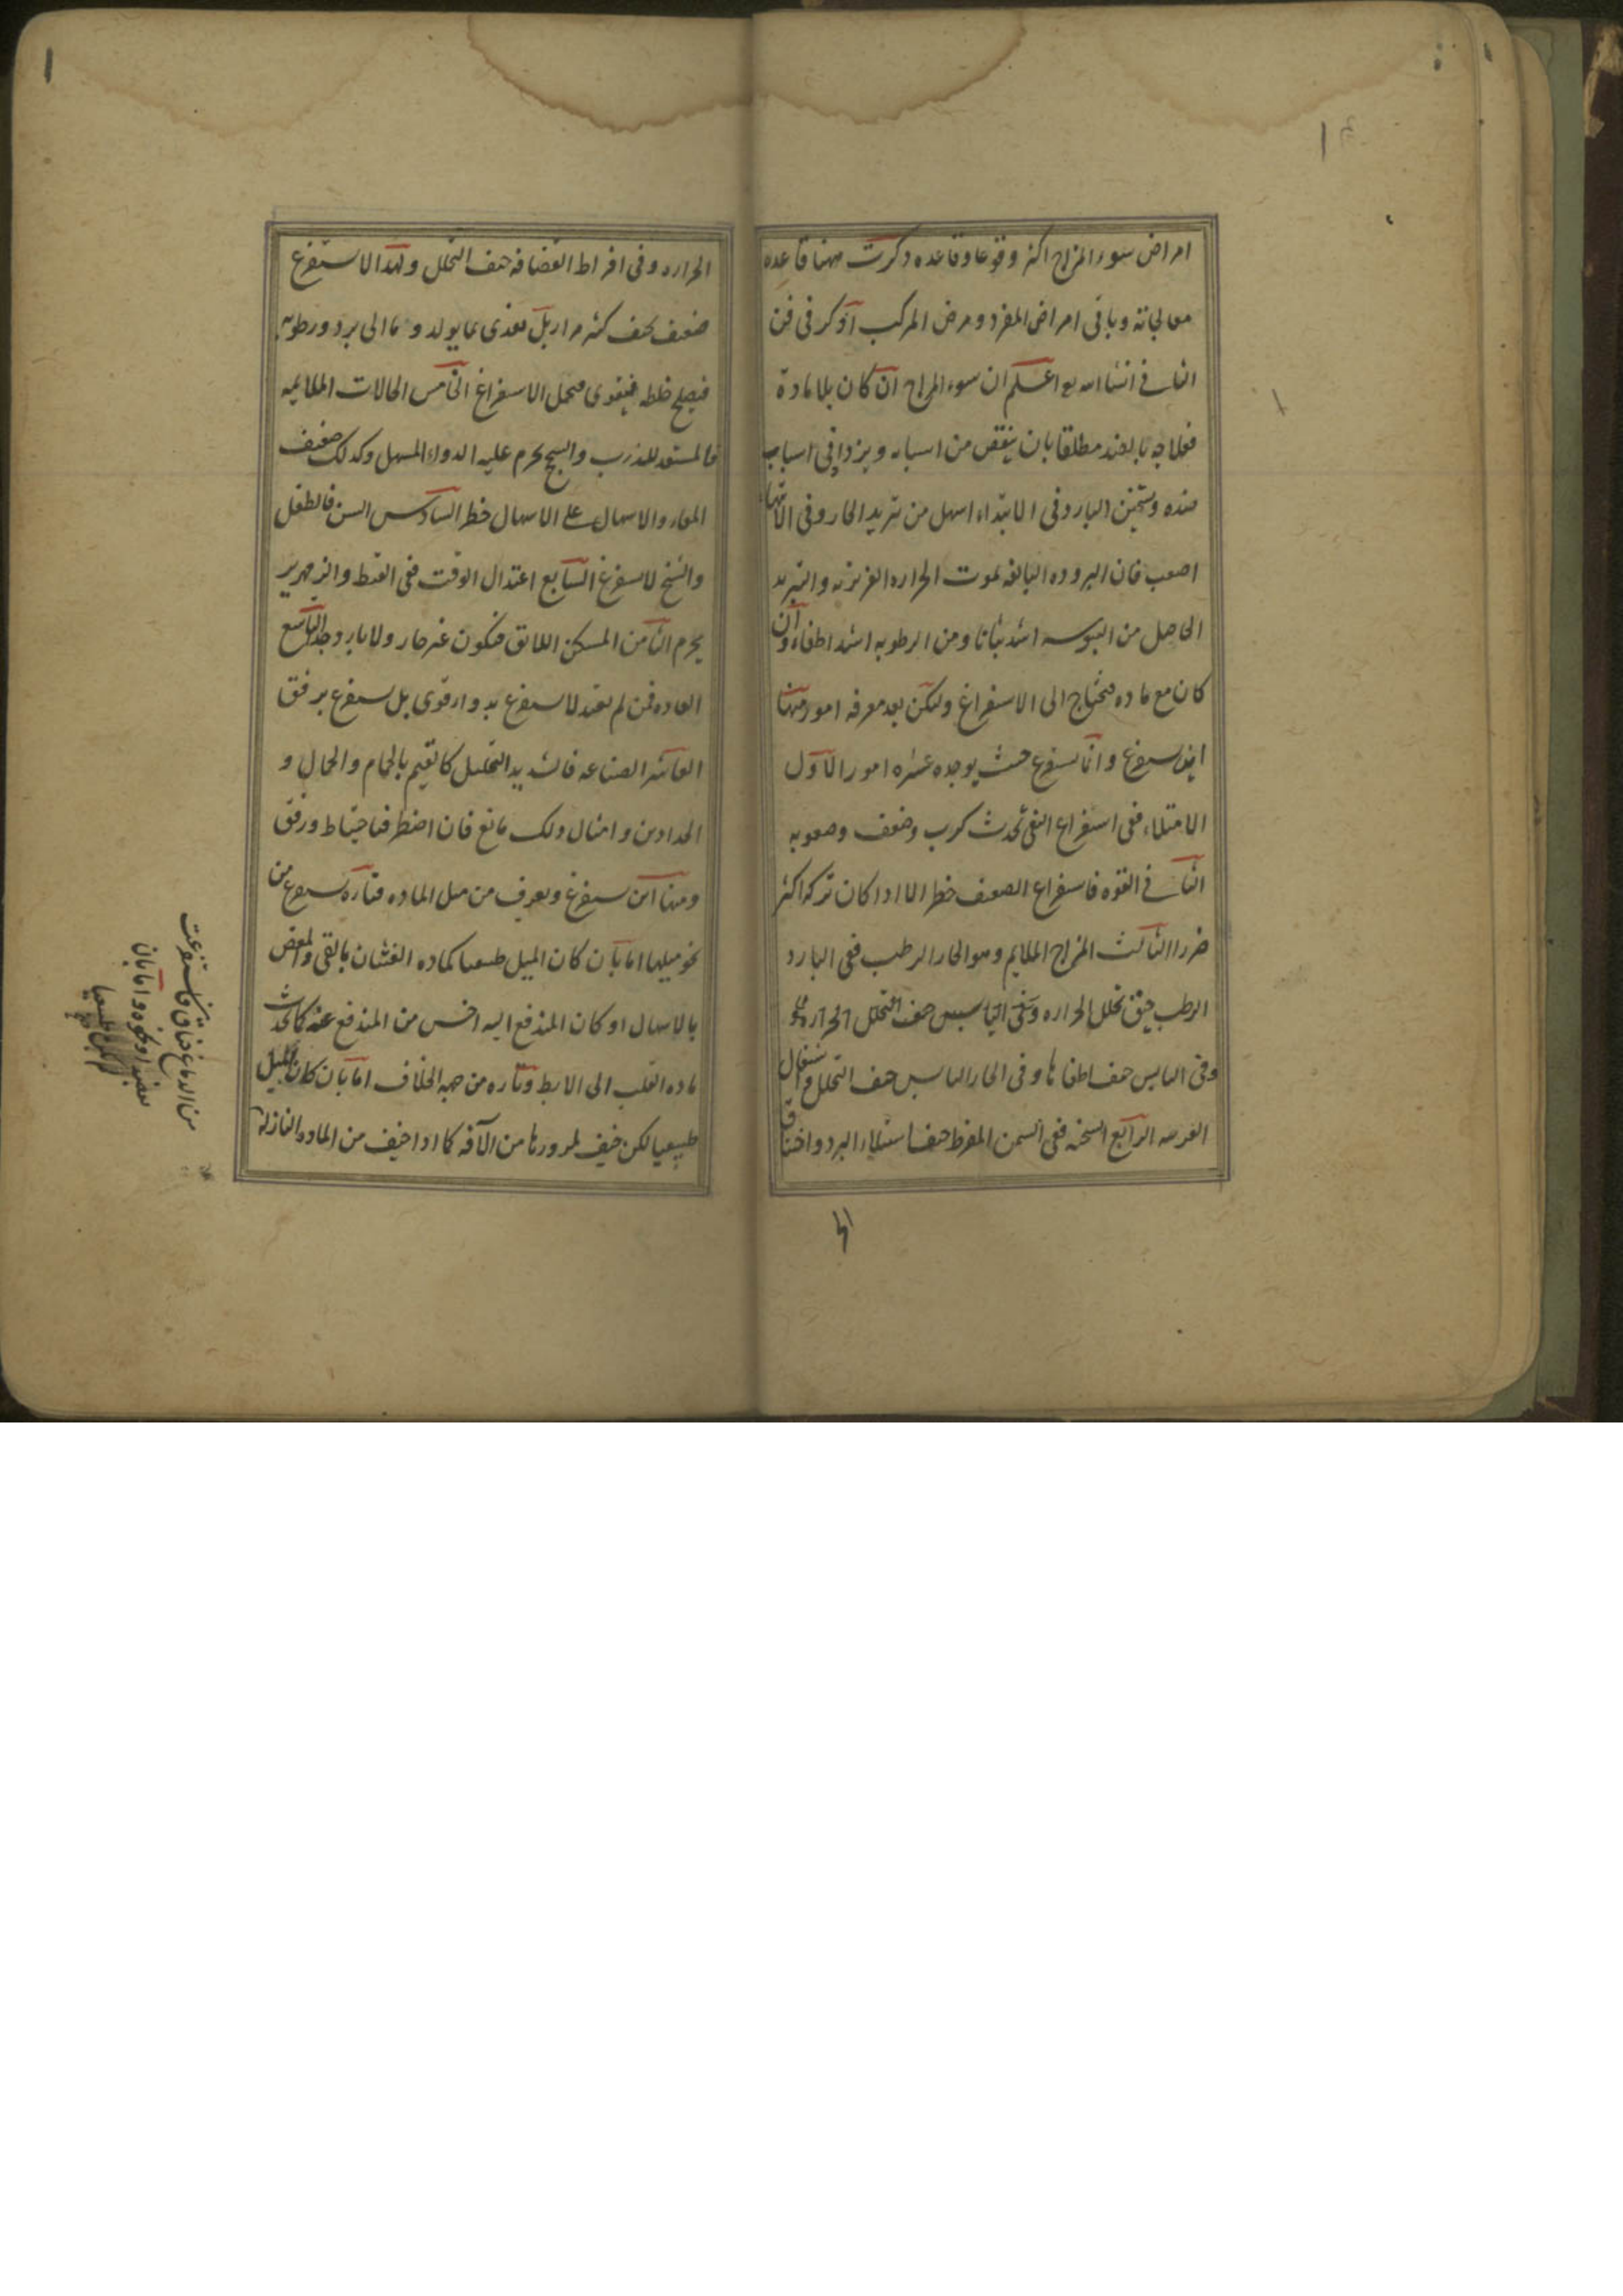 امراض سوء المزاج اكثر وقوعا وقاعده ذكرت ههنا قاعده
معالجاته وباقى امراض المفرد ومرض المركب اذكر فى فن
الثانى انشا الله تع اعلم ان سوء المزاج ان كان بلا مادة
فعلاجه بالضد مطلقا بان ينقص من اسبابه ويزداد فى اسباب
ضده وتسخين البارد فى الابتداء اسهل من تبريد الحار وفى الانتهاء
اصعب فان البروده البالغه لموت الحراره الغريزيه والتبريد
الحاصل من اليبوسه اشد ثباتا ومن الرطوبه اشد اطفاء وان
كان مع ماده فيحتاج الى الاستفراغ ولكن بعد معرفه امور منها
اين يستفرغ وانا يستفرغ حيث يوجد عشره امور الاول
الامتلاء ففى استفراغ النقى تحدث كرب وضعف وصعوبه
الثانى القوه فاستفراغ الضعيف خطر الا اذا كان تركه اكثر
ضررا الثالث المزاج الملايم وهو الحار الرطب ففى البارد
الرطب خيف تحلل الحراره وفى اليابس خيف التحلل الحراره
وفى اليابس خيف اطفاها وفى الحار اليابس خيف التحلل و اشتعال
الغرسه الرابع السحنه ففى السمن المفرط خيف استيلاء البرد واختناق
الحراره وفى افراط القضافه خيف التحلل ولهذا لا يستفرغ
ضعيف نحيف كثير مرار بل يغذى بما يولد دما الى برد ورطوبه
فيصلح خلطه فيقوى فيحمل الاستفراغ الخامس الحالات الملايمه
فالمستعد للذرب والسحج يحرم عليه الدواء المسهل وكذلك ضعيف
المعاء والاسهال على الاسهال خطر السادس السن فالطفل
والشيخ لا يستفرغ السابع اعتدال الوقت ففى القيظ والزمهرير
يحرم الثامن المسكن اللائق فيكون غير حار ولا بارد وجدا التاسع
العاده فمن لم يعتد لا يستفرغ بدواء قوى بل يستفرغ برفق
العاشر الصناعه فالشديد التحليل كالقيم بالحمام والحمال و
الحدادين وامثال ذلك مانع فان اضطر فباحتياط ورفق
ومنها اين يستفرغ ويعرف من ميل الماده فتارة يستفرغ من
نحو ميلها اما بان كان الميل طبيعيا كماده الغثيان بالقى والمغص
بالاسهال او كان المندفع اليه اخس من المندفع عنه كما تحدث
ماده القلب الى الابط وتاره من جهه الخلاف اما بان كان الميل
طبيعيا لكن خيف لمرورها من الآفه كما اذا خيف من الماده النازلة
من الدماغ خناق فاستفرغت
بفصد او نحوه واما بان